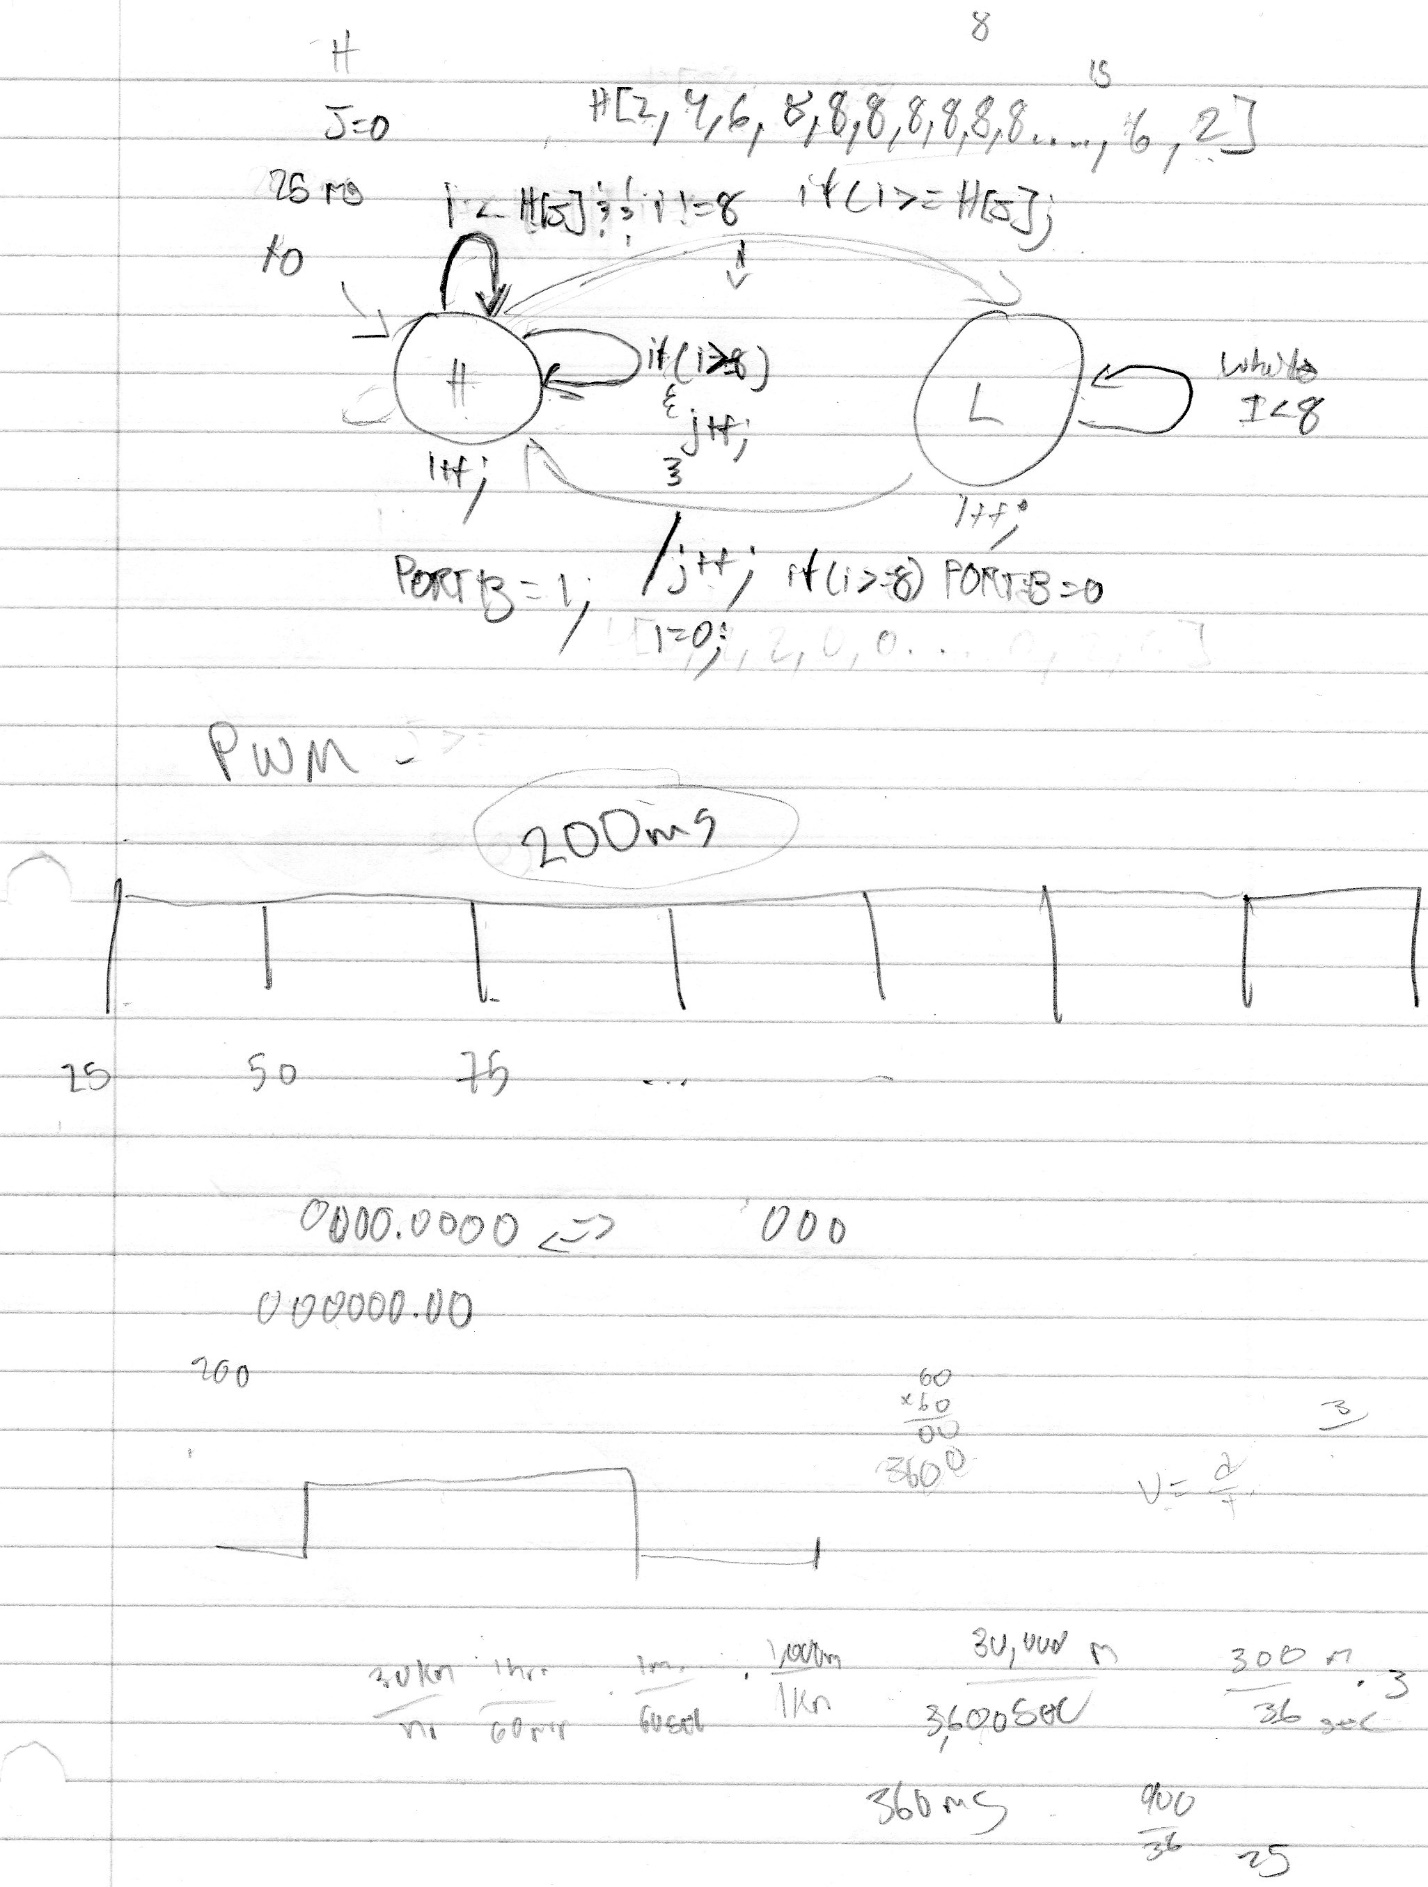 8
H
15
J=0
H[2, 4, 6, 8, 8, 8, 8, 8, 8, 8....., 6, 2]
25 ms
i < H[J] && i != 8
if(i>=H[J];
H
if(i>=8)
{
j++;
}
L
while
I<8
i++;
i++;
PORTB=1;
/j++; if(i>=8)
PORTB=0
i=0;
PWM
200ms
25 50 75 ...
0000.0000 <=> 000
000000.00
200
60
x60
00
3600
3
V = d/t
30km/hr
1hr/60min · 1m/60sec · 1,000m/1km
30,000 m/3,600 sec
300 m/36 sec · 3
360 ms
900/36
25